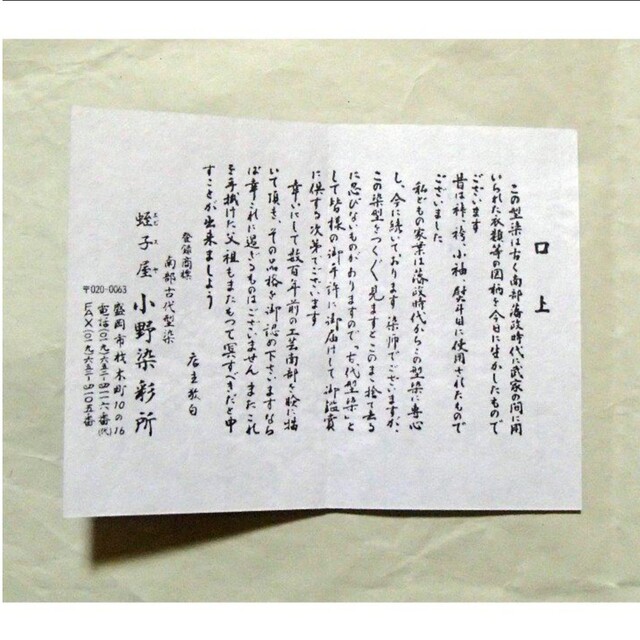 口上
この型染は古く南部藩政時代に武家の間に用
いられた衣類等の図柄を今日に生かしたもので
ございます
昔は裃、袴、小袖、熨斗目に使用されたもので
ございました
私どもの家業は藩政時代からこの型染に専心
し、今に続いております染師でございますが、
この染型をつくぐ見ますとこのまま捨て去る
に忍びないものがありますので、「古代型染」と
して皆様の御手許に御届けして御鑑賞
に供する次第でございます
幸いにして数百年前の工芸南部を瞼に描
いて頂き、その品格を御認め下さいますなら
ば幸これに過ぎるものはございませんまたこれ
を手掛けた父祖もまたもつて冥すべきだと申
すことが出来ましよう
店主敬白
登録商標
南部古代型染
エビスヤ
蛭子屋 小野染彩所
〒020-0063
盛岡市材木町10の16
電話(〇一九)六五二―四一一六番(代)
FAX(〇一九)六五二―四一〇五番